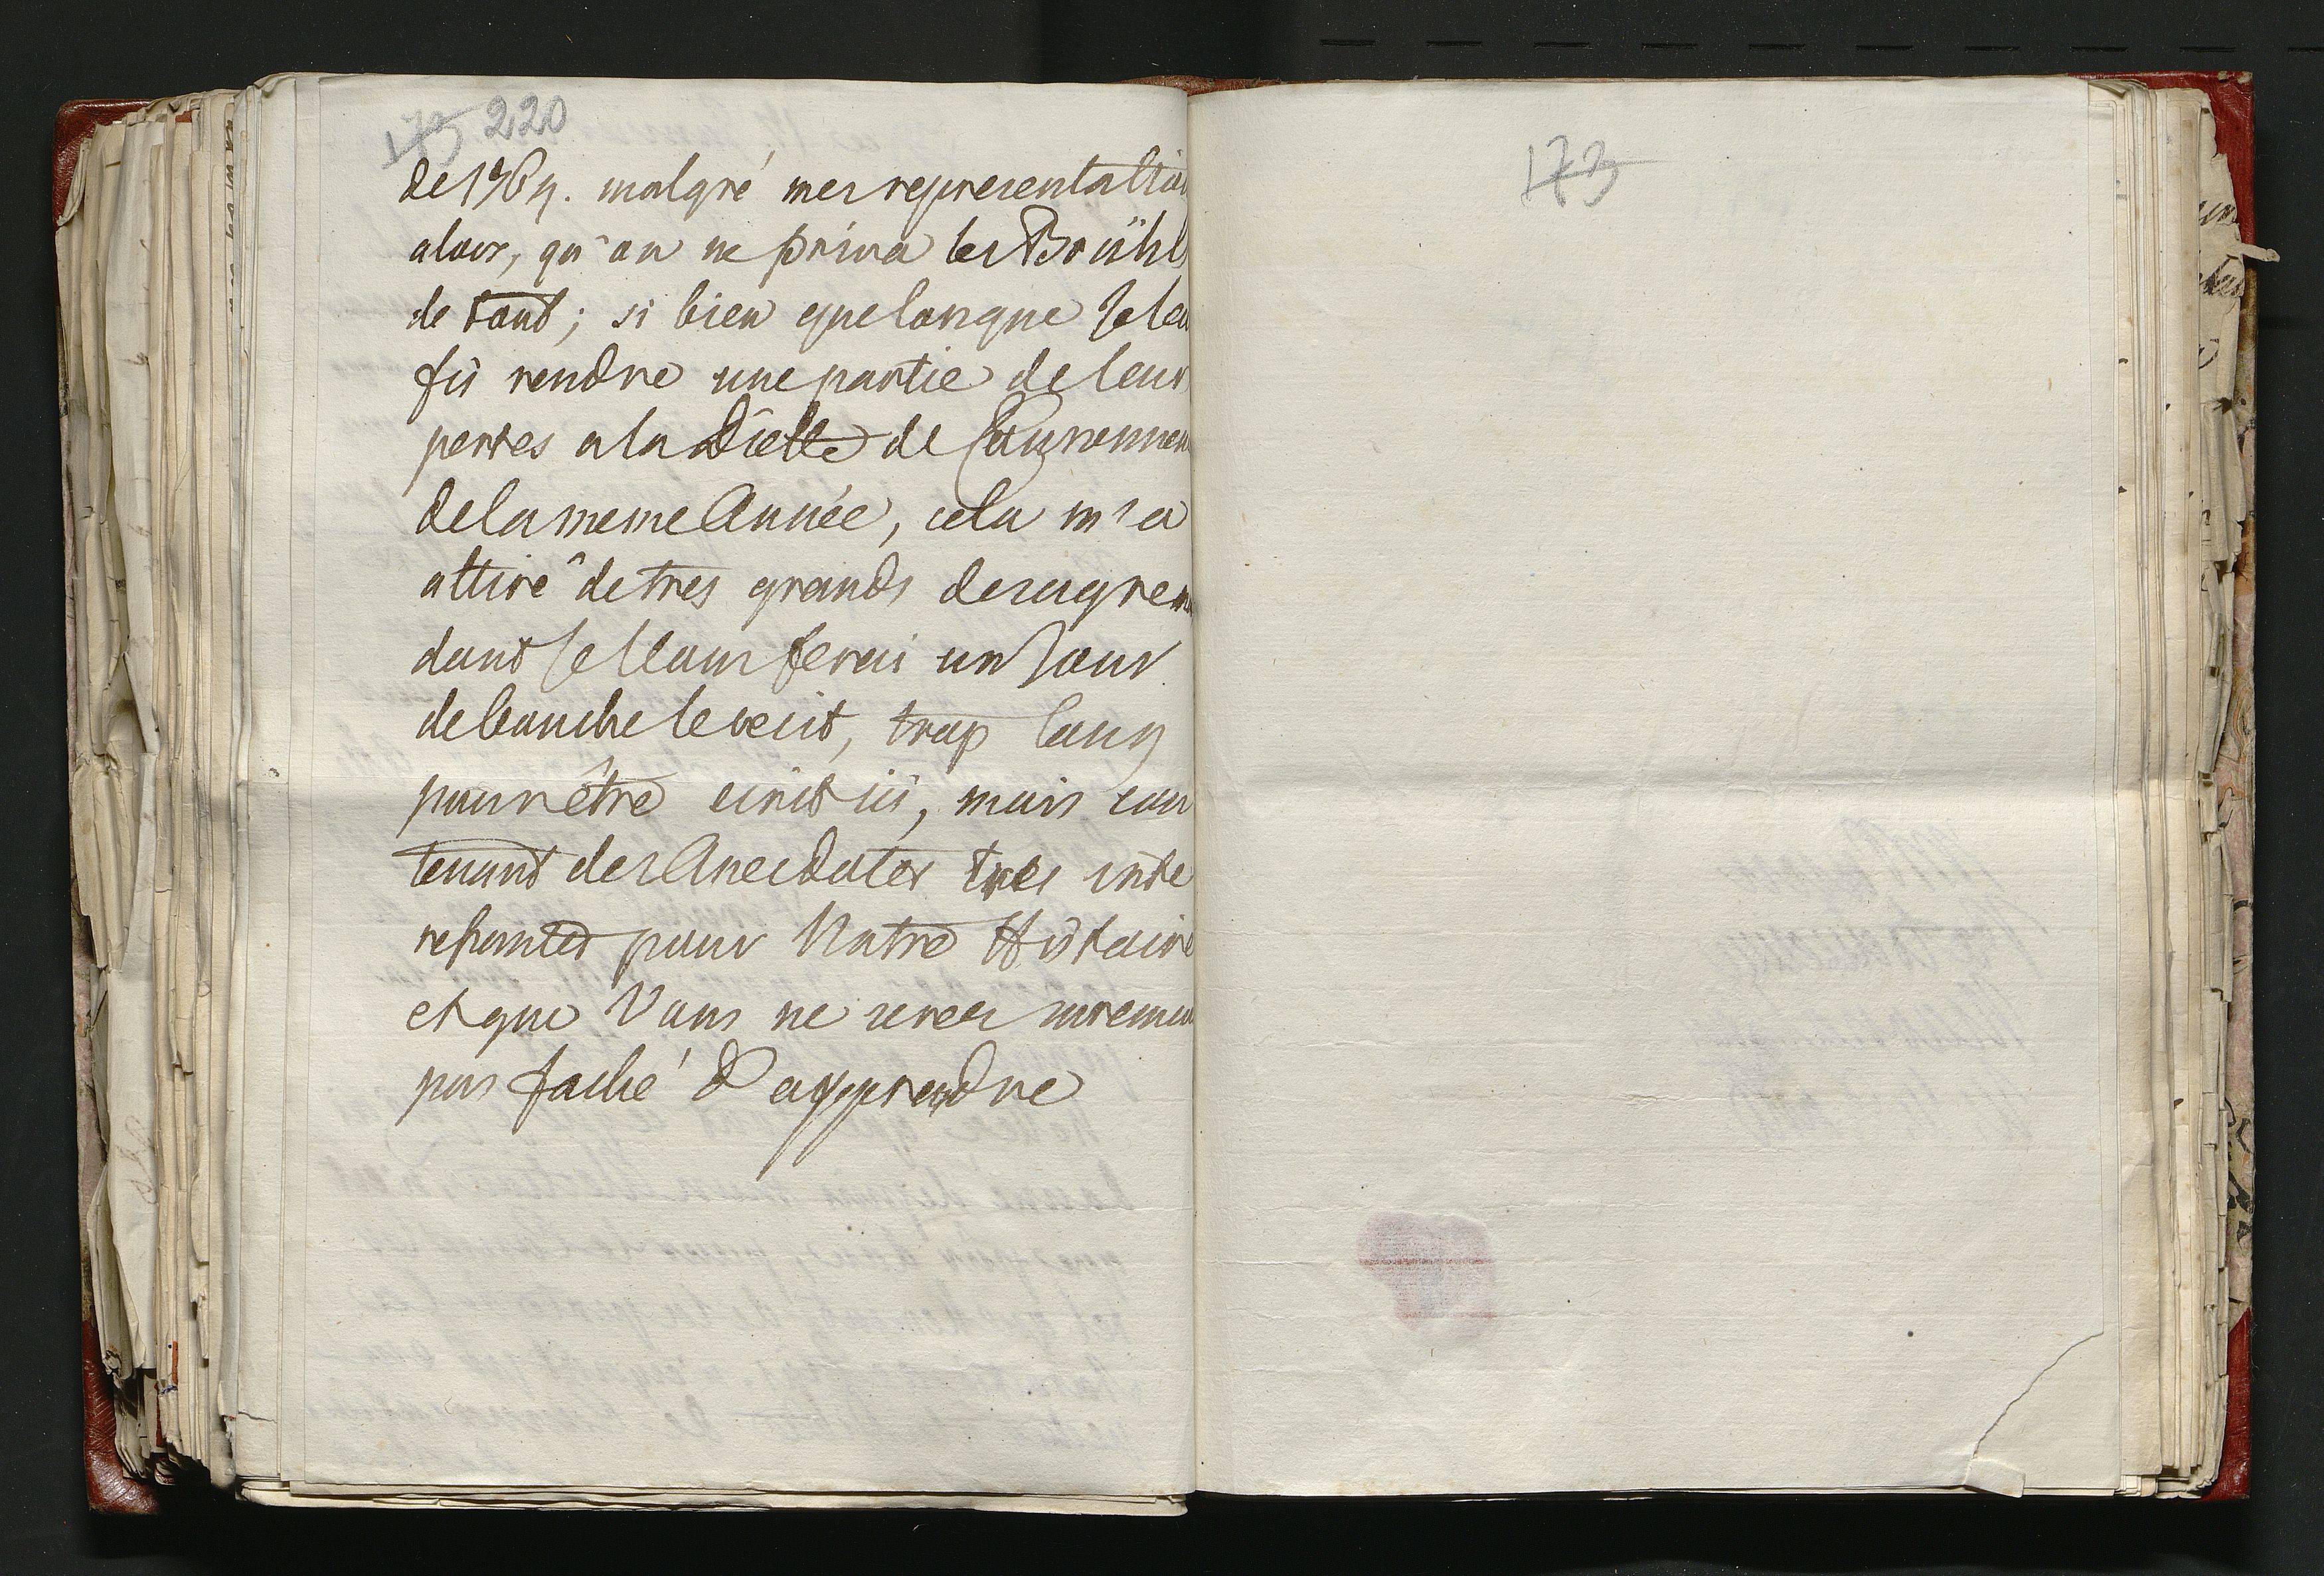 173 220
de 1764. malgré mes representation
alors, qu'on ne priva les Brühls
de tout; si bien que lorsque Je leu
fis rendre une partie de leurs
pertes a la Diette de Couronnem
de la meme Année, cela m'a
attiré de tres grands desagrem
dont Je Vous ferai un Jour
de bouche le recit, trop long
pour être ecrit ici, mais con
tenant des Anecdotes tres inte
ressantes pour Notre Histoire
et que Vous ne serez surement
pas faché d'apprendre
173